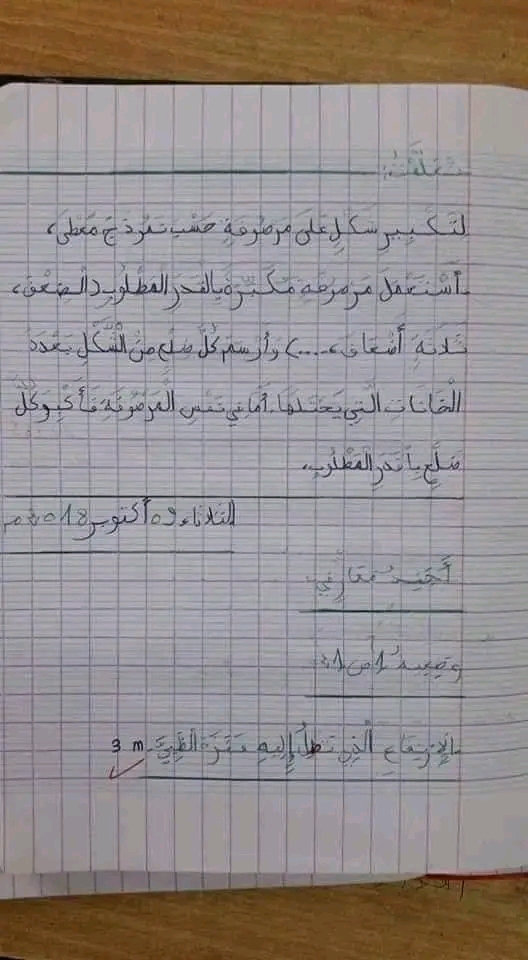 تعلّمت:
لتكبير شكل على مرصوفة حسب نموذج معطى،
أستعمل مرصوفة مكبّرة بالقدر المطلوب (الضعف،
ثلاثة أضعاف، ...) وأرسم كلّ ضلع من الشّكل بعدد
الخانات الّتي يحتلها. أما في نفس المرصوفة فأكبر كلّ
ضلع بالقدر المطلوب.
الثلاثاء 09 أكتوبر 2018م
أجنّد معارفي:
وضعية 1 ص 12
الارتفاع الّذي تصل إليه قفزة الظّبي 3 m